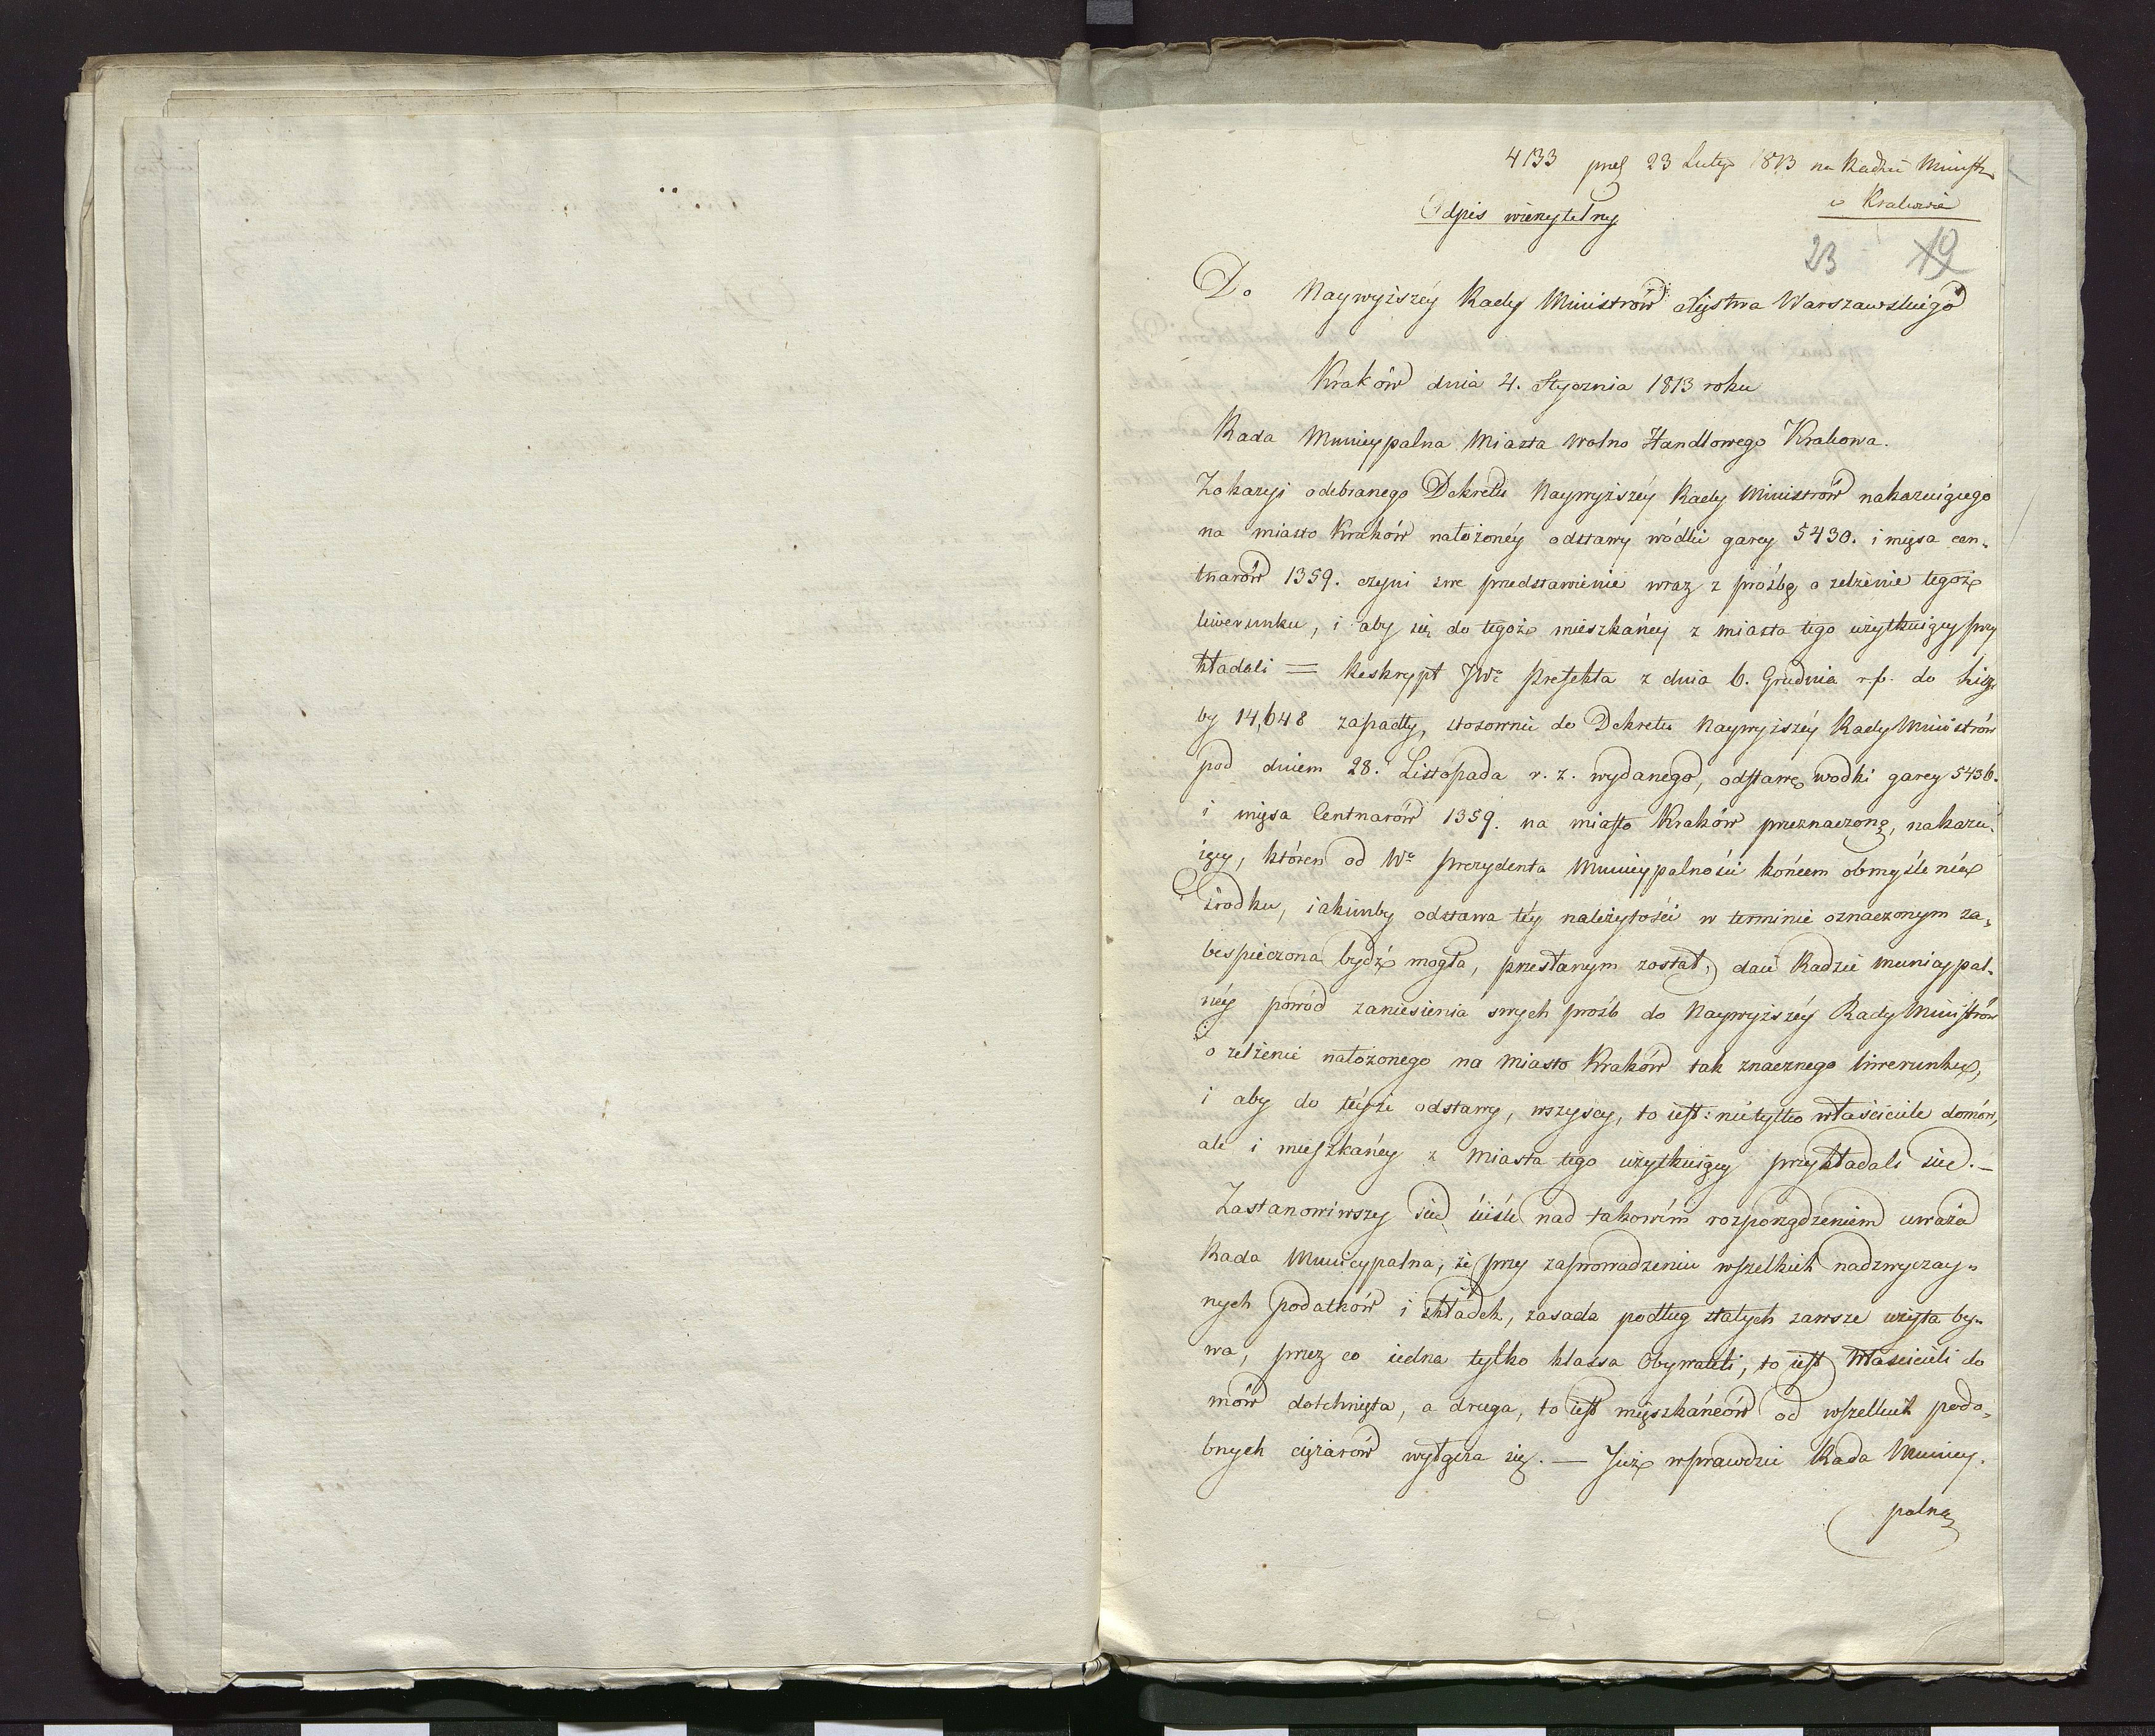 4133 pręs 23 Lutego 1813 na Radzie Ministr.
w Krakowie
Odpis wierzytelny
23 19
Do Naywyiszéy Rady Ministrów Xięstwa Warszawskiego
Kraków dnia 4. Stycznia 1813 roku
Rada Municypalna Miasta Wolno Handlowego Krakowa.
Zokazyi odebranego Dekretu Naywyższéy Rady Ministrów nakazuiącego
na miasto Kraków nałożonéy odstawy wódki garcy 5430. i mięsa cen„
tnarów 1359. czyni swe przedstawienie wraz z prośbą o zelżenie tegoż
liwerunku, i aby się do tegoż mieszkańcy z miasta tego użytkuiący przy
kładali = Reskrypt JWo Prefekta z dnia 6. Grudnia r. p. do Licz„
by 14,648 zapadły, stosownie do Dekretu Naywyższéy Rady Ministrów
pod dniem 28. Listopada r. z. wydanego, odstawę wodki garcy 5436.
i mięsa Centnarów 1359. na miasto Kraków przeznaczoną, nakazu„
iący, któren od Wo Prezydenta Municypalności końcem obmyślenia
środku, iakimby odstawa téy należytości w terminie oznaczonym za„
bespieczona bydź mogła, przesłanym został, daie Radzie Municypal„
néy powód zaniesienia swych prośb do Naywyższéy Rady Ministrów
o zelżenie nałożonego na Miasto Kraków tak znacznego liwerunku,
i aby do téyże odstawy, wszyscy, to iest: nietylko właściciele domów,
ale i mieszkańcy z Miasta tego użytkuiący przykładali się. —
Zastanowiwszy się ściśle nad takowém rozporządzeniem uważa
Rada Municypalna, że przy zaprowadzeniu wszelkich nadzwyczay„
nych podatków i składek, zasada podług stałych zawsze wzięta by„
wa, przez co iedna tylko klassa Obywateli, to iest Właścicieli do
mów dotchnięta, a druga, to iest mięszkańców od wszelkich podo„
bnych ciężarów wyłącza się. — Już wprawdzie Rada Municy„
palna